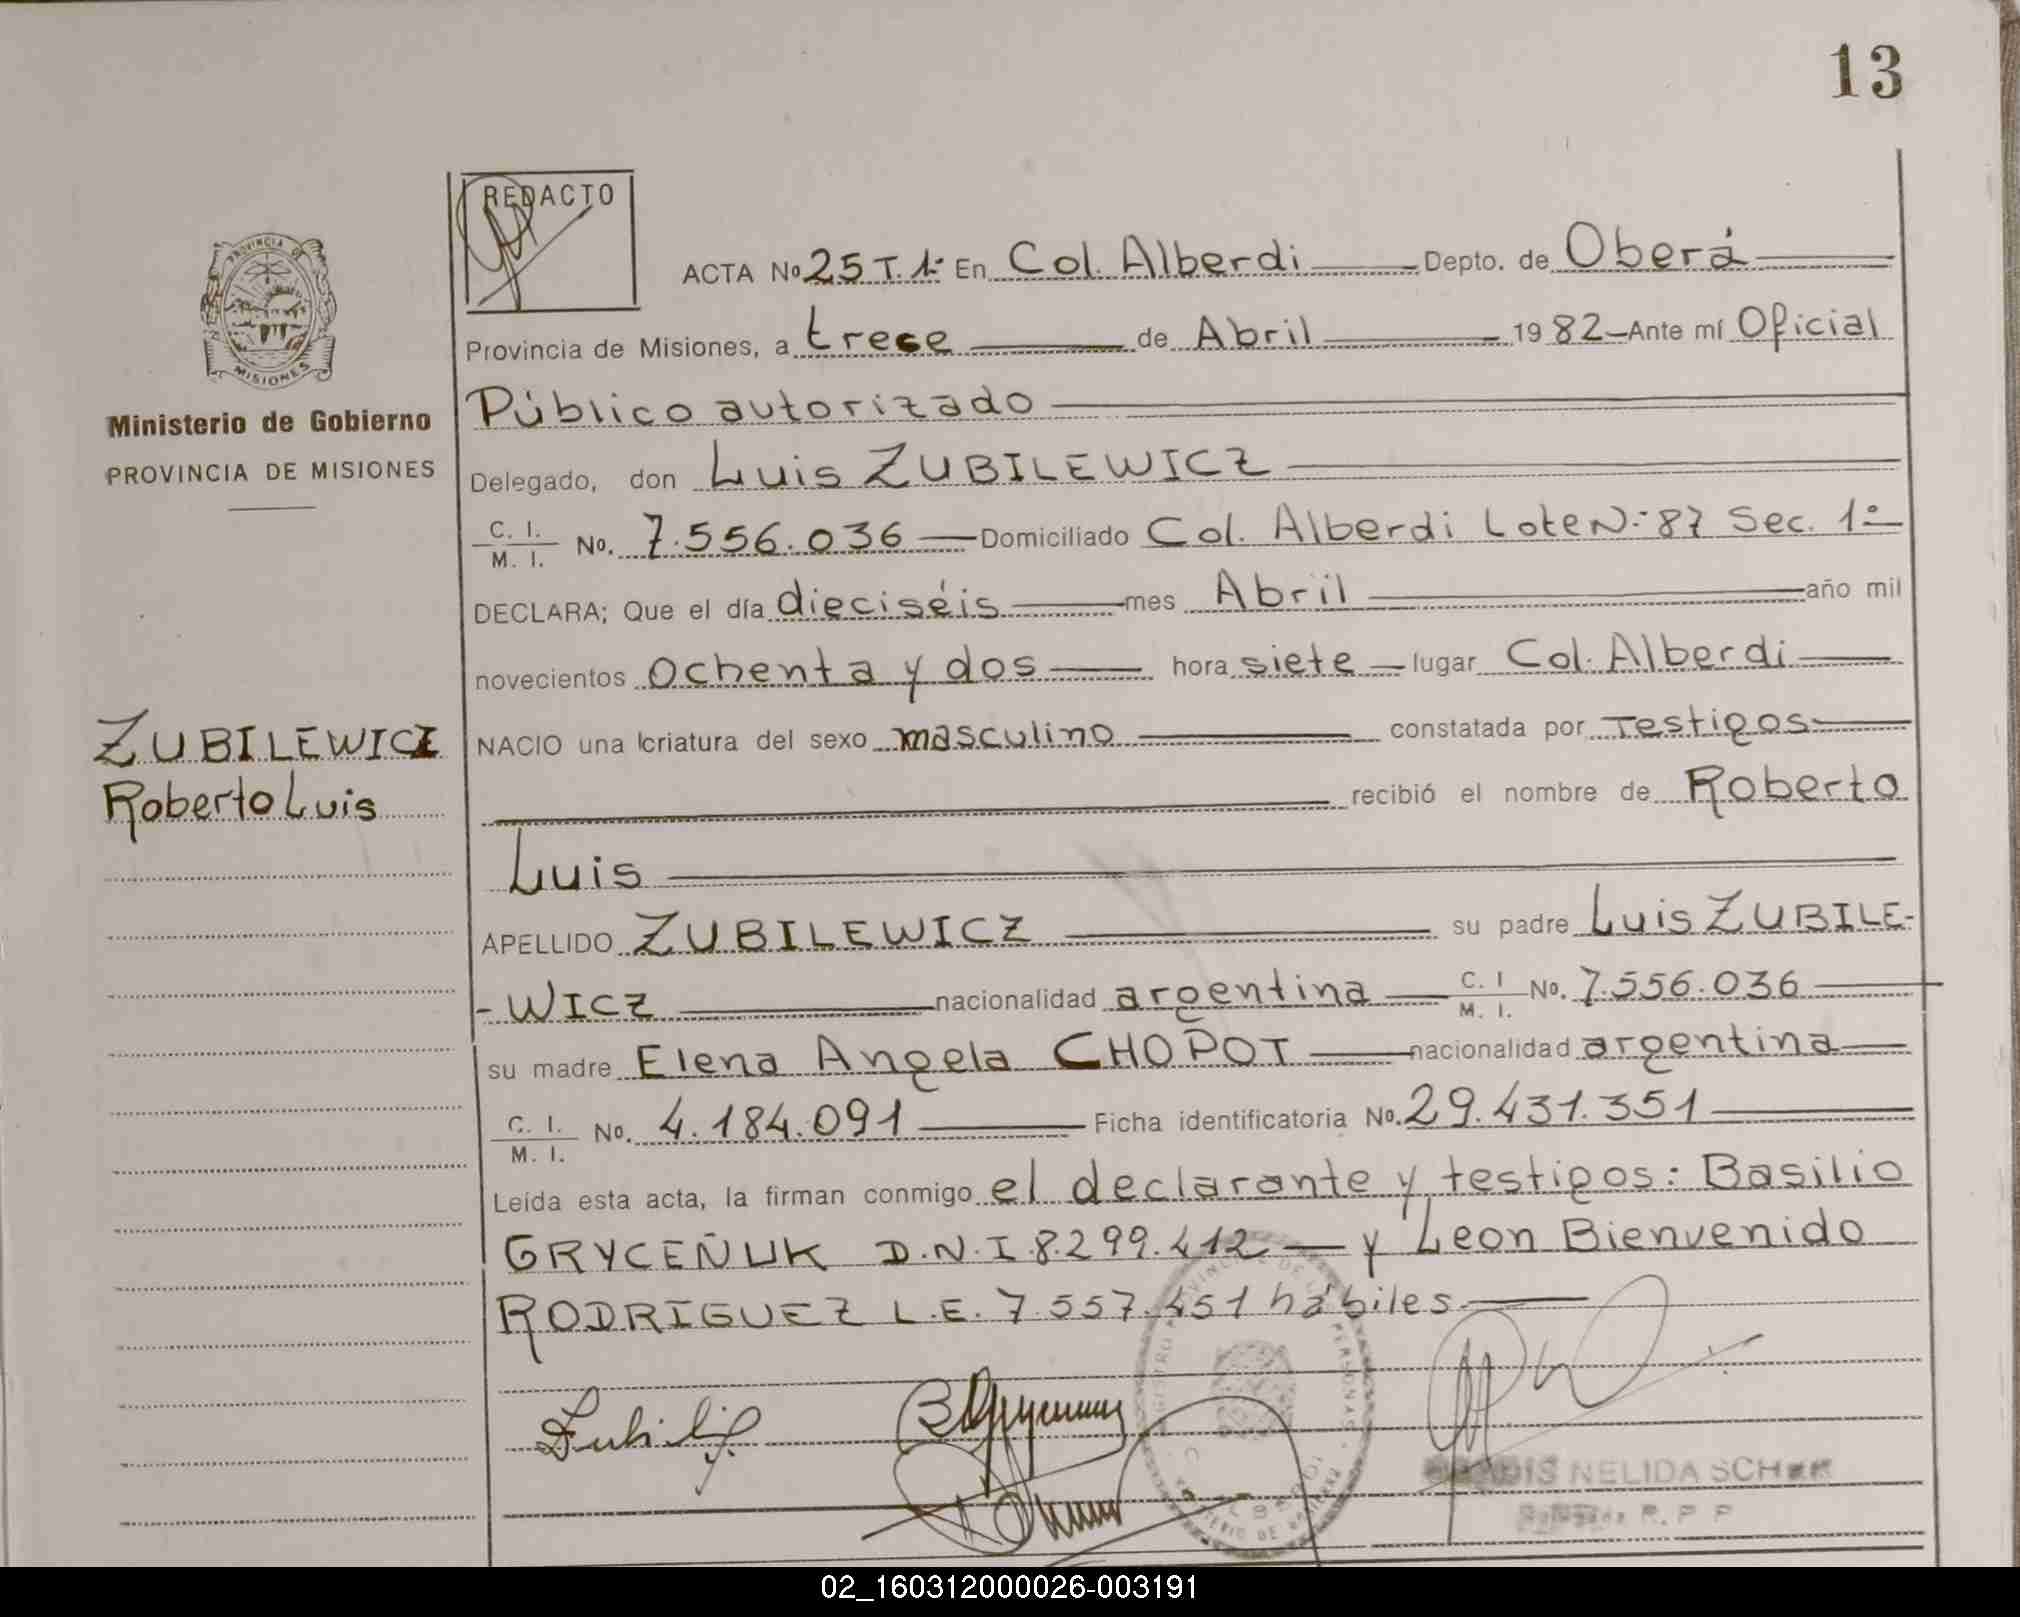 13
REDACTO
ACTA Nº 25 T. 1º En Col. Alberdi Depto. de Oberá
Provincia de Misiones, a trece de Abril 1982 Ante mí Oficial
Público autorizado
PROVINCIA DE
MISIONES
Ministerio de Gobierno
PROVINCIA DE MISIONES
Delegado, don Luis ZUBILEWICZ
C. I.
M. I. No. 7.556.036 Domiciliado Col. Alberdi Lote N.º 87 Sec. 1º
DECLARA; Que el día dieciséis mes Abril año mil
novecientos ochenta y dos hora siete lugar Col. Alberdi
ZUBILEWICZ
Roberto Luis
NACIO una criatura del sexo masculino constatada por Testigos
recibió el nombre de Roberto
Luis
APELLIDO ZUBILEWICZ su padre Luis ZUBILE-
-WICZ nacionalidad argentina C. I. M. I. No. 7.556.036
su madre Elena Angela CHOPOT nacionalidad argentina
C. I.
M. I. No. 4.184.091 Ficha identificatoria No. 29.431.351
Leída esta acta, la firman conmigo el declarante y testigos: Basilio
GRYCEÑUK D.N.I 8.299.412 y Leon Bienvenido
RODRIGUEZ L.E. 7.557.451 hábiles
NELIDA
R. P. P
02_160312000026-003191